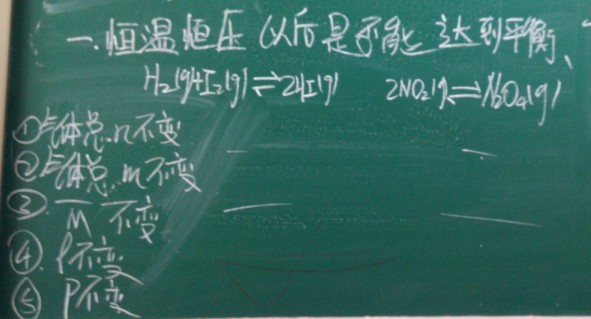 一.恒温恒压 以后是否能达到平衡、
H₂(g)+I₂(g)⇌2HI(g) 2NO₂(g)⇌N₂O₄(g)
①气体总n不变
②气体总m不变
③.M̅不变
④.ρ不变
⑤ P不变